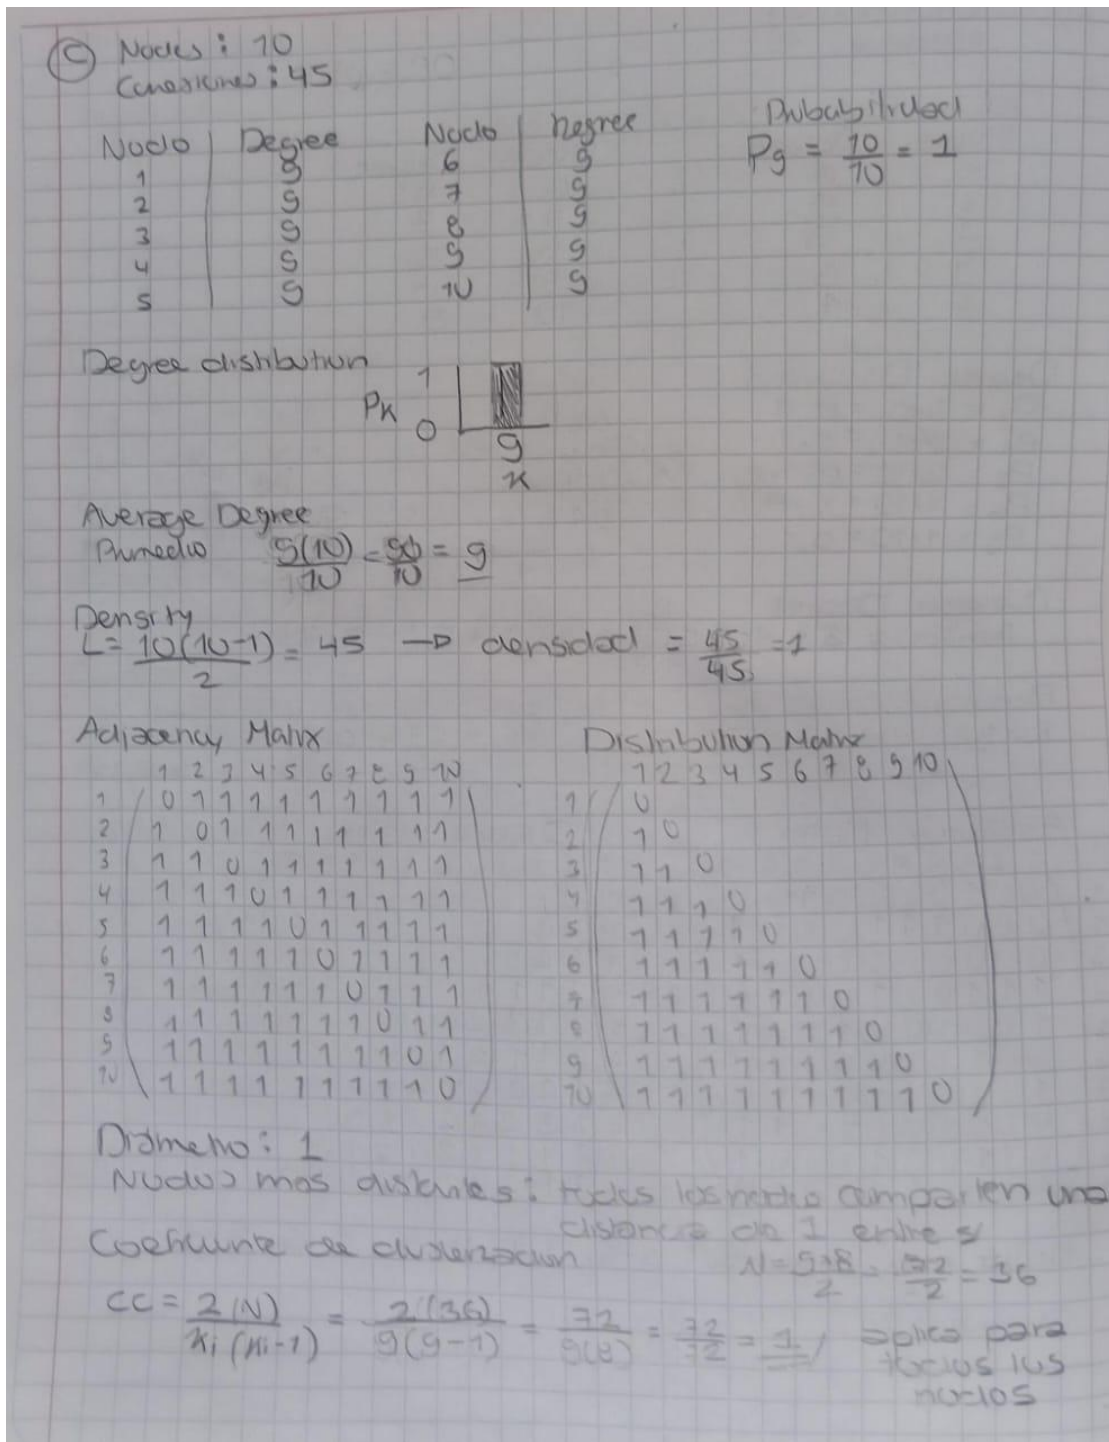 C Nodes: 10
Conexiones: 45
Nodo Degree Nodo Degree
1 9 6 9
2 9 7 9
3 9 8 9
4 9 9 9
5 9 10 9
Probabilidad
P9 = 10/10 = 1
Degree distribution
1
PK
0
9
K
Average Degree
Promedio 9(10)/10 = 90/10 = 9
Density
L = 10(10-1)/2 = 45 → densidad = 45/45 = 1
Adjacency Matrix
1 2 3 4 5 6 7 8 9 10
1 0 1 1 1 1 1 1 1 1 1
2 1 0 1 1 1 1 1 1 1 1
3 1 1 0 1 1 1 1 1 1 1
4 1 1 1 0 1 1 1 1 1 1
5 1 1 1 1 0 1 1 1 1 1
6 1 1 1 1 1 0 1 1 1 1
7 1 1 1 1 1 1 0 1 1 1
8 1 1 1 1 1 1 1 0 1 1
9 1 1 1 1 1 1 1 1 0 1
10 1 1 1 1 1 1 1 1 1 0
Distribution Matrix
1 2 3 4 5 6 7 8 9 10
1 0
2 1 0
3 1 1 0
4 1 1 1 0
5 1 1 1 1 0
6 1 1 1 1 1 0
7 1 1 1 1 1 1 0
8 1 1 1 1 1 1 1 0
9 1 1 1 1 1 1 1 1 0
10 1 1 1 1 1 1 1 1 1 0
Diámetro: 1
Nodos mas distantes: todos los nodo comparten una
distancia de 1 entre si
Coeficiente de clusterizacion
N = 9*8/2 = 72/2 = 36
CC = 2(N)/Ki(Ki-1) = 2(36)/9(9-1) = 72/9(8) = 72/72 = 1 / aplica para
todos los
nodos